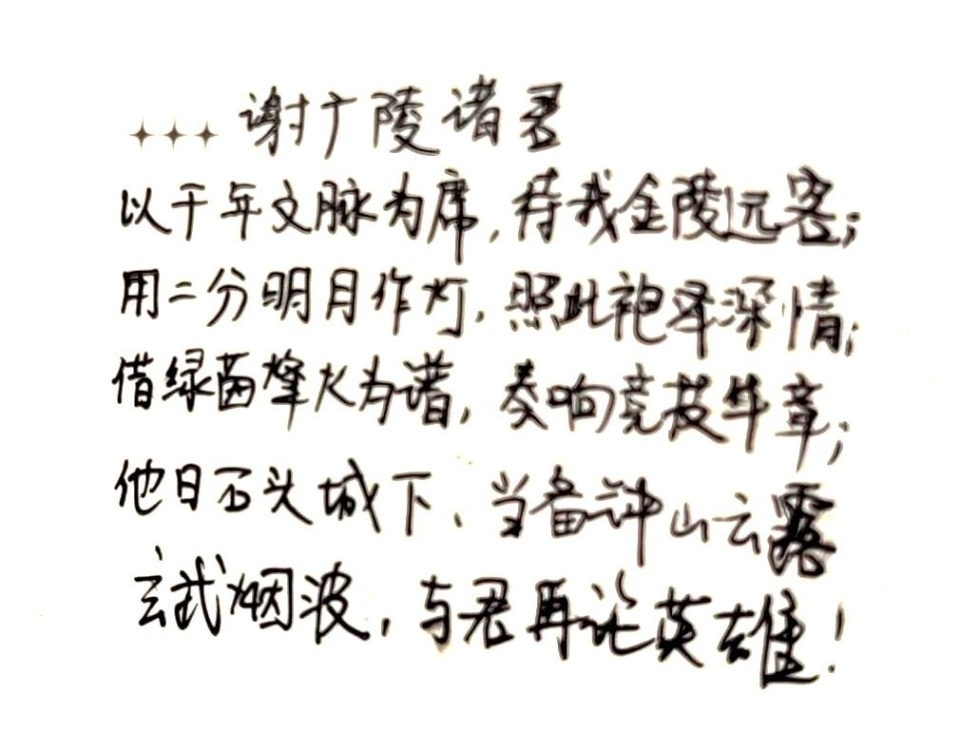 谢广陵诸君
以千年文脉为席，待我金陵远客；
用二分明月作灯，照此袍泽深情；
借绿茵烽火为谱，奏响竞技华章；
他日石头城下、当备钟山云露
玄武烟波，与君再论英雄！